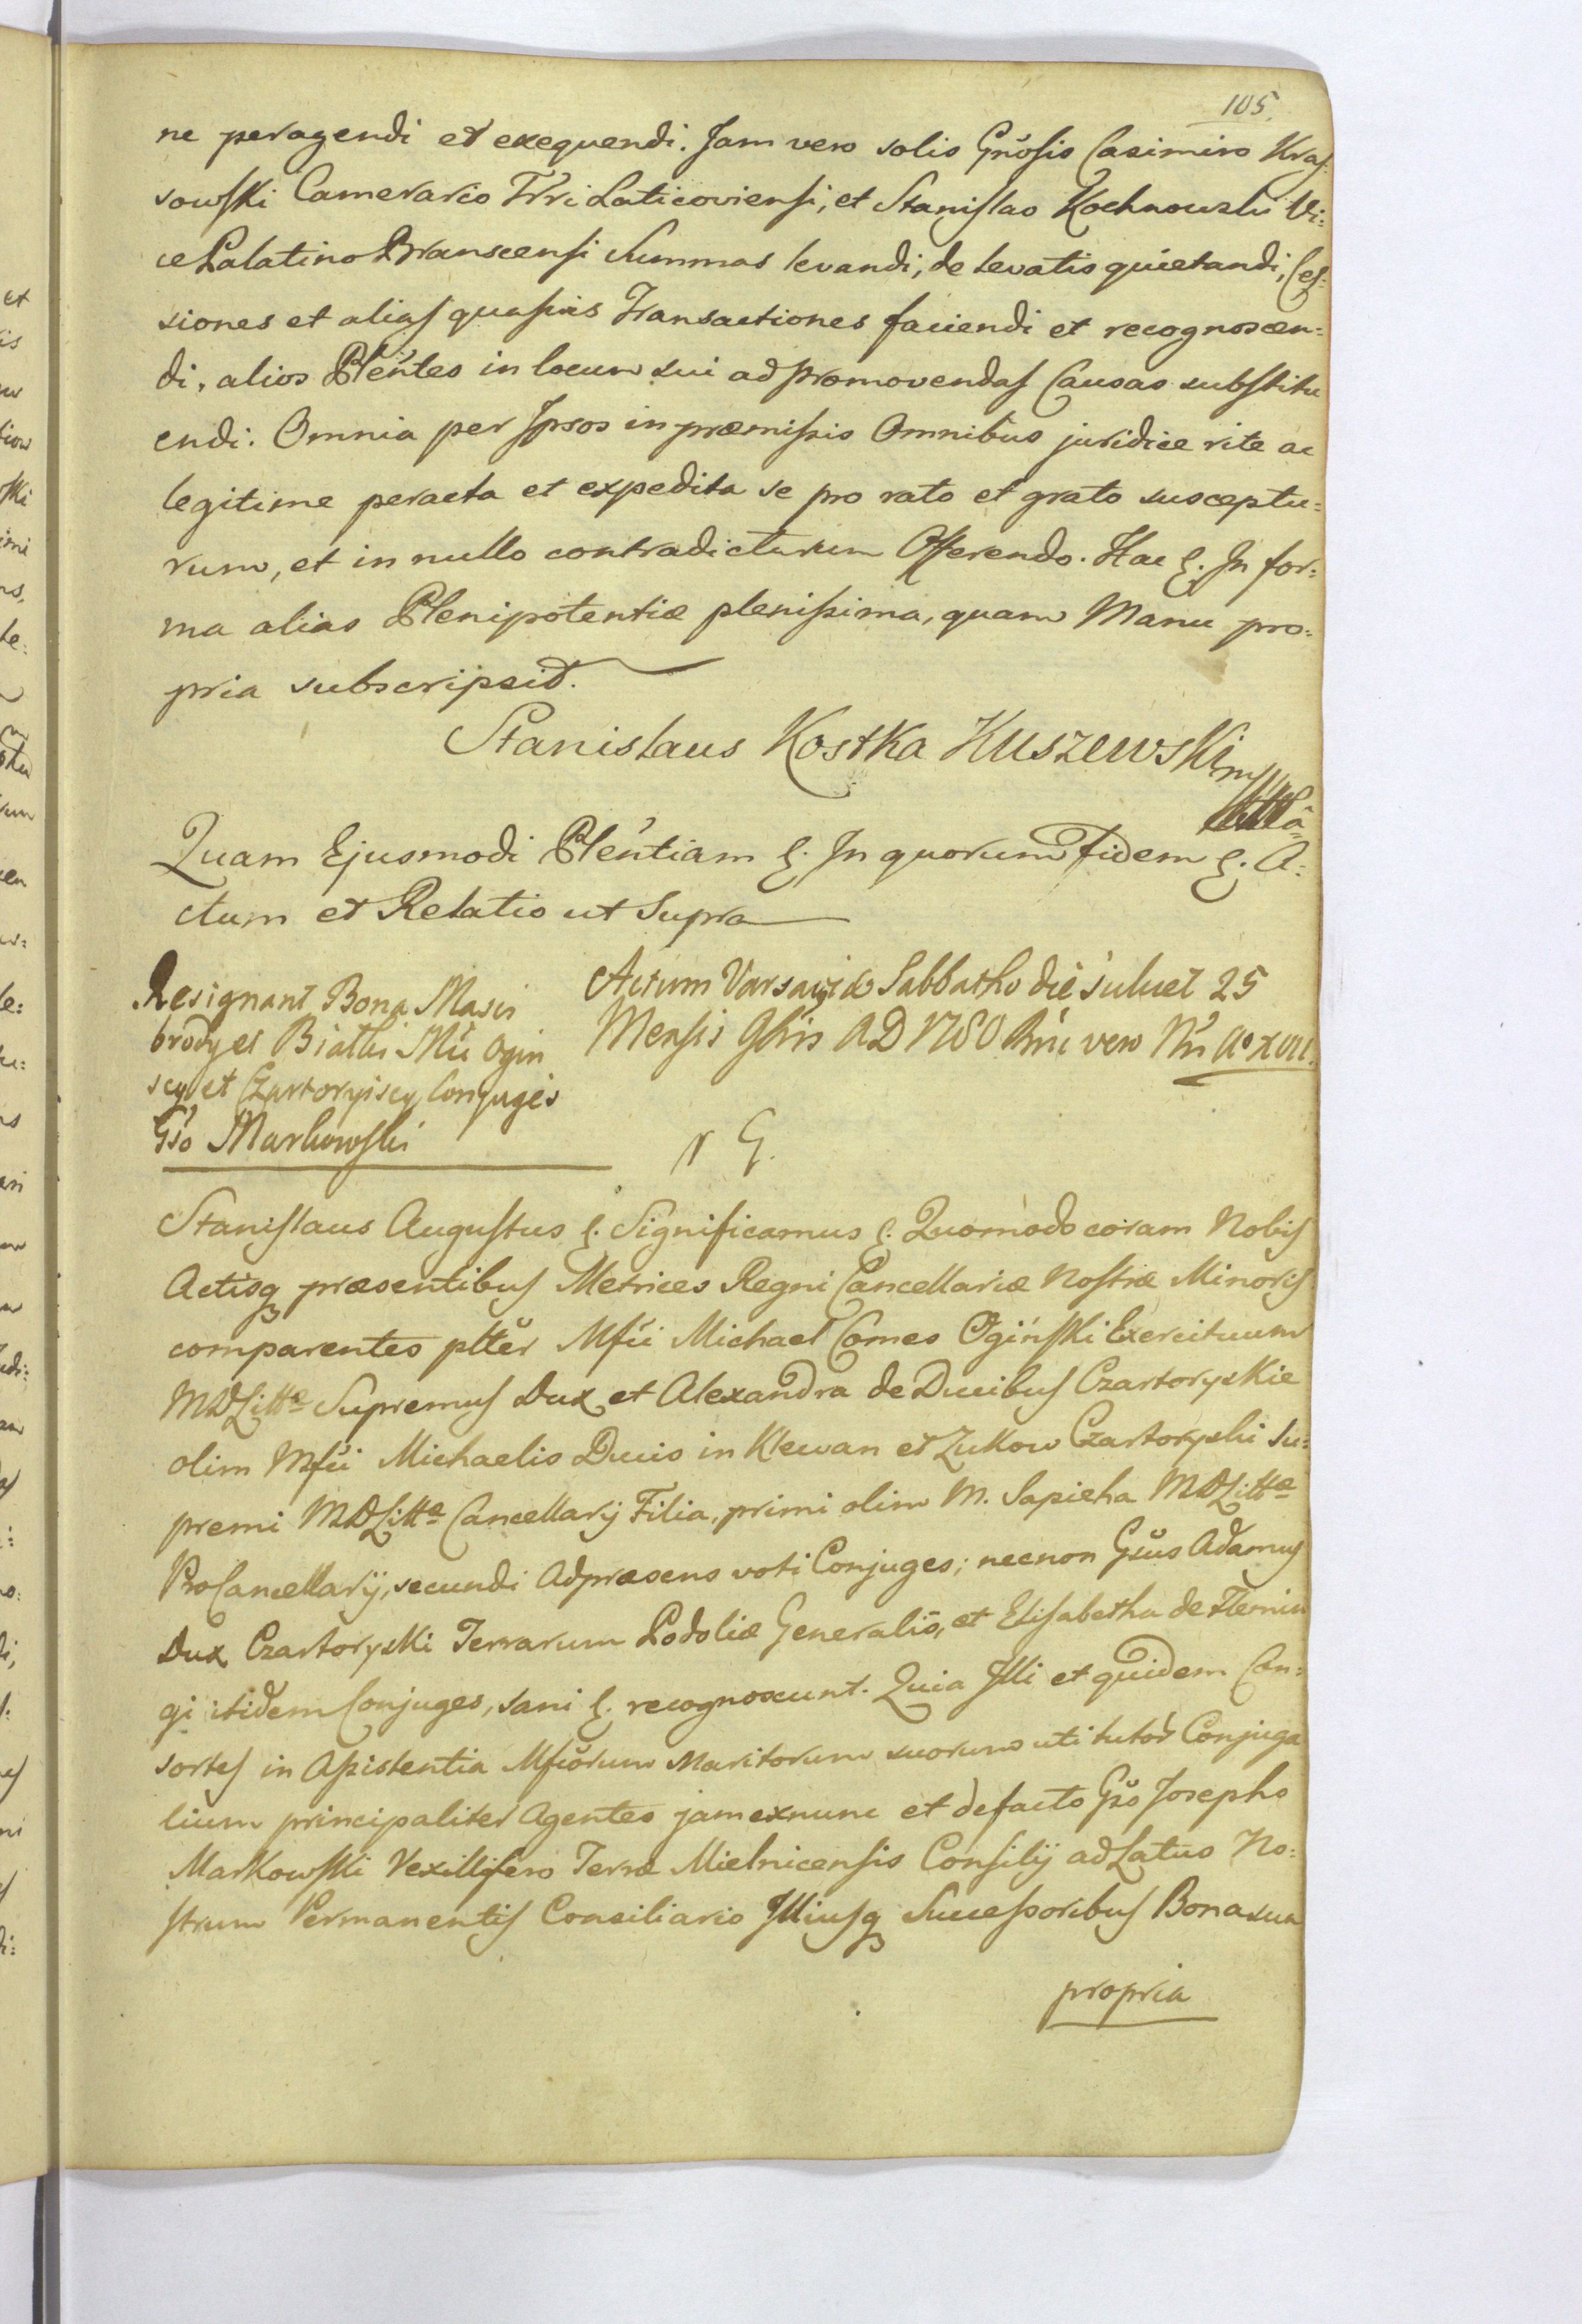 105.
ne peragendi et exequendi. Jam vero solis Gnŏsis Casimiro Kras:
sowski Camerario Trri Laticoviensi, et Stanislao Kochnowski Vi:
ce Palatino Branscensi Summas levandi, de levatis quietandi, Ces:
siones et alias quasvis Transactiones faciendi et recognoscen:
di, alios Plentes in locum sui ad promovendas Causas substitu
endi. Omnia per Ipsos in præmissis Omnibus juridice rite ac
legitime peracta et expedita se pro rato et grato susceptu:
rum, et in nullo contradicturum Offerendo. Hac &. In for:
ma alias Plenipotentiæ plenissima, quam Manu pro:
pria subscripsit.
Stanislaus Kostka Kuszewski mp
Quam Ejusmodi Plentiam &. In quorum Fidem &. A:
ctum et Relatio ut Supra
Resignant Bona Masie
brody et Biatki Mci Ogin
scy et Czartoryiscy Conjuges
Gso Markowski
Actum Varsaviæ Sabbatho die scilicet 25
Mensis 9bris AD 1780 Rni vero Nri Ao XVII.
N G.
Stanislaus Augustus &. Significamus &. Quomodo coram Nobis
Actisq præsentibus Metrices Regni Cancellariæ Nostræ Minoris
comparentes plter Mfci Michael Comes Ogiński Exercituum
MDLittæ Supremus Dux et Alexandra de Ducibus Czartoryskie
olim Mfci Michaelis Ducis in Klewan et Zukow Czartoryski Su:
premi MDLittæ Cancellarij Filia, primi olim M. Sapieha MDLittæ
ProCancellarij, secundi Adpræsens voti Conjuges; necnon Gsus Adamus
Dux Czartoryski Terrarum Podoliæ Generalis, et Elisabetha de Flemin
gi itidem Conjuges, sani &. recognoscunt. Quia Illi et quidem Con:
sortes in Assistentia Mfcorum Maritorum suorum uti tutor Conjuga
lium principaliter Agentes jam exnunc et defacto Gso Josepho
Markowski Vexillifero Terræ Mielnicensis Consilij ad Latus No:
strum Permanentis Consiliario Illiusq Successoribus Bona sua
propria